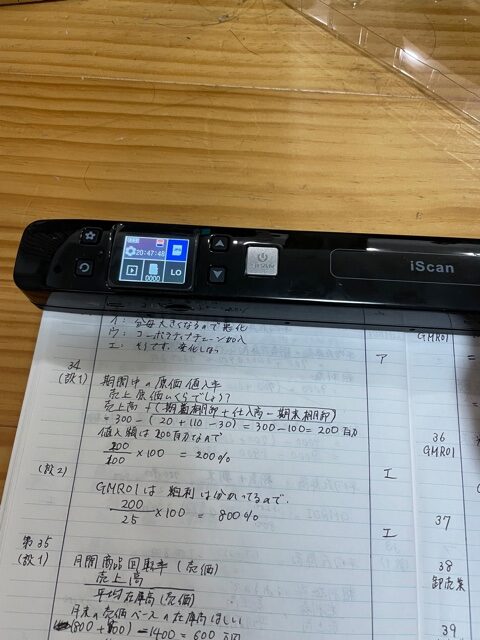 20:47:48
0000
LO
iScan
イ: 分母大きくなるので悪化
ウ: コーポラティブチェーン加入
エ:
ア
GMR01
34
(設1) 期間中の原価値入率
売上原価いくらでしょう?
売上高 - (期首棚卸 + 仕入高 - 期末棚卸)
= 300 - (20 + 110 - 30) = 300 - 100 = 200百万
値入額は200百万なので
200
100 × 100 = 200%
エ
36
GMR01
(設2)
GMR01は 粗利 はかってるので、
200
25 × 100 = 800%
エ
37
第35
(設1) 月間商品回転率 (売価)
売上高
平均在庫高(売価)
38
卸売業
月末の売価ベースの在庫高ほしい
- 1400 = 600万円
39